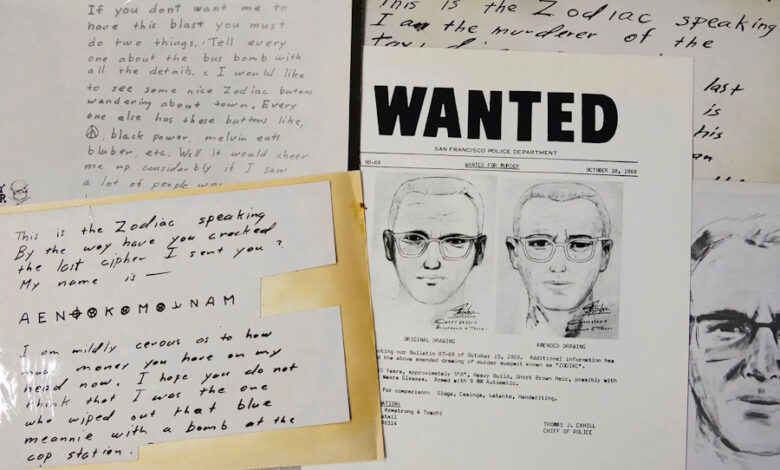 If you dont want me to
have this blast you must
do two things. 1 Tell every
one about the bus bomb with
all the details. 2 I would like
to see some nice Zodiac butons
wandering about town. Every
one else has these buttons like,
black power, melvin eats
bluber, etc. Well it would cheer
me up considerbly if I saw
a lot of people
This is the Zodiac speaking
I am the murderer of the
last
is
his
an
WANTED
SAN FRANCISCO POLICE DEPARTMENT
90-69 WANTED FOR MURDER OCTOBER 18, 1969
ORIGINAL DRAWING AMENDED DRAWING
our Bulletin 87-69 of October 13, 1969. Additional information has
the above amended drawing of murder suspect known as "ZODIAC".
approximately 5'8", Heavy Build, Short Brown Hair, possibly with
Wears Glasses. Armed with 9 MM Automatic.
for comparison: Slugs, Casings, Latents, Handwriting.
Armstrong & Toschi
THOMAS J. CAHILL
CHIEF OF POLICE
This is the Zodiac speaking
By the way have you cracked
the last cipher I sent you?
My name is —
AEN⌖⊗K⊗M⊗⅃NAM
I am mildly cerous as to how
much money you have on my
head now. I hope you do not
think that I was the one
who wiped out that blue
meannie with a bomb at the
cop station.